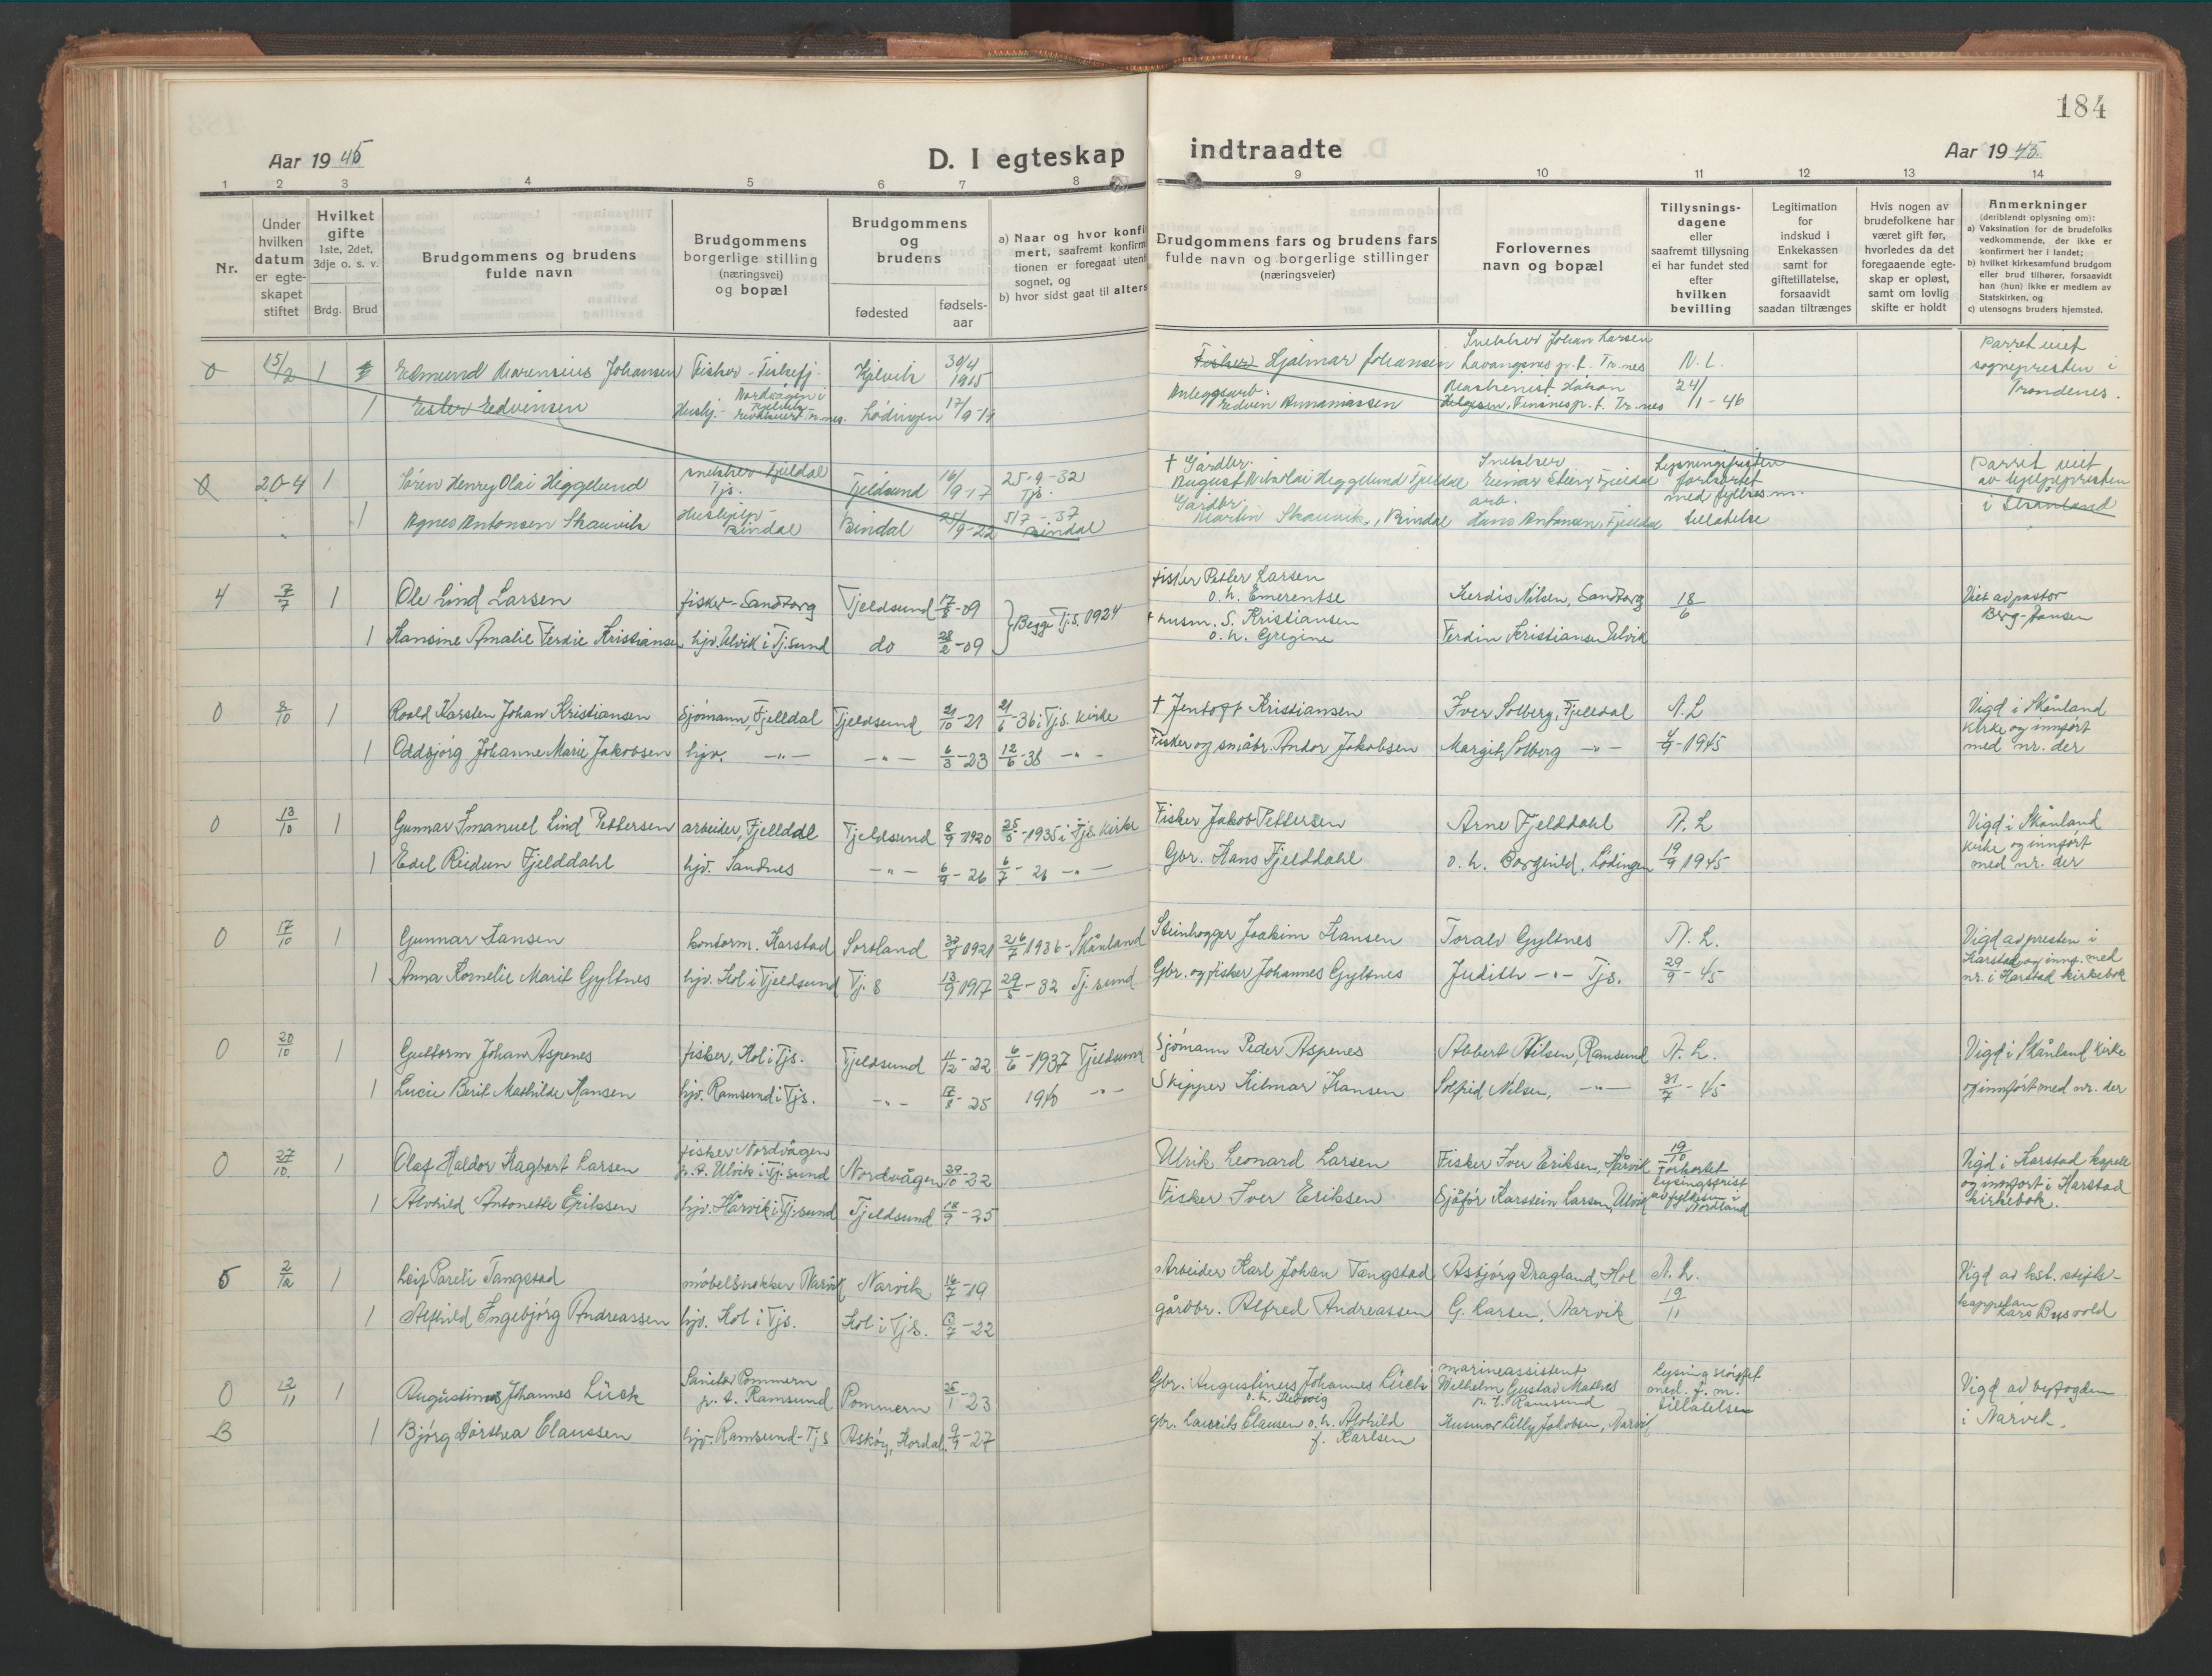 184
Aar 1945
D. I egteskap indtraadte
Aar 1945
1 2 3 4 5 6 7 8 9 10 11 12 13 14
Nr.
Under hvilken datum er egteskapet stiftet
Hvilket gifte
1ste, 2det, 3dje o. s. v.
Brdg. Brud
Brudgommens og brudens fulde navn
Brudgommens borgerlige stilling (næringsvei) og bopæl
Brudgommens og brudens
fødested
fødsels-aar
a) Naar og hvor konfi
mert, saafremt konfirm
tionen er foregaat utenf
sognet, og
b) hvor sidst gaat til alters
Brudgommens fars og brudens fars
fulde navn og borgerlige stillinger
(næringsveier)
Forlovernes
navn og bopæl
Tillysnings-
dagene
eller
saafremt tillysning
ei har fundet sted
efter
hvilken
bevilling
Legitimation
for
indskud i
Enkekassen
samt for
giftetillatelse,
forsaavidt
saadan tiltrænges
Hvis nogen av
brudefolkene har
været gift før,
hvorledes da det
foregaaende egte-
skap er opløst,
samt om lovlig
skifte er holdt
Anmerkninger
(deriblandt oplysning om):
a) Vaksination for de brudefolks
vedkommende, der ikke er
konfirmert her i landet;
b) hvilket kirkesamfund brudgom
eller brud tilhører, forsaavidt
han (hun) ikke er medlem av
Statskirken, og
c) utensogns bruders hjemsted.
0 15/2 1 Edmund Marensius Johansen Fisker - Fiskefj. Kjelvik 30/4 1915 Fisker Hjalmar Johansen Snekker Johan Larsen Lavangsnes p.t. Tr.nes N. L. Parret viet sognepresten i Trondenes.
1 Ester Edvinsen Hushj. Lødingen 17/9-19 Anleggsarb. Edvin Annaniassen 24/1-46
0 20-4 1 Søren Henry Olai Heggelund snekker Fjeldal Tjs. Tjeldsund 16/9-17 25-9-32 Tjs. † Gårdbr. August Nikolai Heggelund Fjeldal Snekker Einar Steen, Fjeldal Lysningsfristen forkortet Parret viet av hjelpepresten
1 Agnes Antonsen Skauvik Hushjelp - Bindal Bindal 25/9-22 5/7-37 Bindal Gårdbr. Martin Skauvik, Bindal arb. Hans Antonsen, Fjeldal med fylkes.m. tillatelse i Skånland
4 7/7 1 Ole Lind Larsen fisker - Sandtorg Tjeldsund 17/8-09 Begge Tj.S. 1924 fisker Petter Larsen o.h. Emerentse Herdis Nilsen, Sandtorg 18/6 Viet av pastor Berg-Jansen
1 Hansine Amalie Ferdie Kristiansen hjv. Ulvik i Tj.sund do 28/2-09 † husm. S. Kristiansen o.h. Gregine Ferdin Kristiansen Ulvik
0 8/10 1 Roald Karsten Johan Kristiansen Sjømann, Fjelldal Tjeldsund 21/10-21 21/6-36 i Tj.s. kirke † Jentoft Kristiansen Iver Solberg, Fjelldal N. L Vigd i Skånland kirke og innført med nr. der
1 Oddbjørg Johanne Marie Jakobsen hjv. -"- -"- 6/3-23 12/6-38 -"- Fisker og småbr. Andor Jakobsen Margit Solberg -"- 4/9-1945
0 13/10 1 Gunnar Imanuel Lind Pettersen arbeider, Fjelldal Tjeldsund 8/9 1920 25/8-1935 i Tjs. kirke Fisker Jakob Pettersen Arne Fjelddahl N. L Vigd i Skånland kirke og innført med nr. der
1 Edel Reidun Fjelddahl hjv. Sandnes -"- 6/9-26 Gbr. Hans Fjelddahl o. h. Borghild, Lødingen 19/9 1945
0 17/10 1 Gunnar Hansen kontorm. Harstad Sortland 1921 26/7 1936 - Skånland Steinhogger Joakim Hansen Toralv Gyltnes N. L. Vigd av presten i Harstad og innf. med nr. i Harstad kirkebok
1 Anna Kornelie Marit Gyltnes hjv. Hol i Tjeldsund Tj. s 13/9 1917 29/5-32 Tj.sund Gbr. og fisker Johannes Gyltnes Judith -"- Tjs. 29/9-45
0 20/10 1 Guttorm Johan Aspenes fisker, Hol i Tjs. Tjeldsund 11/12-22 6/6-1937 Tjeldsund Sjømann Peder Aspenes Abbert Nilsen, Ramsund N. L. Vigd i Skånland kirke
1 Lucie Berit Mathilde Hansen hjv. Ramsund i Tjs. -"- 17/8-25 1940 -"- Skipper Hilmar Hansen Solfrid Nilsen, -"- 31/7-45 og innført med nr. der
0 27/10 1 Olaf Haldor Hagbart Larsen fisker Nordvågen p.t. Ulvik i Tj.sund Nordvågen 29/10-22 Ulrik Leonard Larsen Fisker Iver Eriksen, Hårvik 19/10 Forkortet lysingsfrist Vigd i Harstad kapell og innført i Harstad kirkebok.
1 Alvhild Antonette Eriksen hjv. Hårvik i Tj.sund Tjeldsund 18/9-25 Fisker Iver Eriksen Sjåfør Karstein Larsen, Ulvik av fylkesm. i Nordland
5 2/12 1 Leif Pareli Tangstad møbelsnekker Narvik Narvik 16/7-19 Arbeider Karl Johan Tangstad Asbjørg Dragland, Hol N. L. Vigd av kst. stiftskappelan Lars Busvold
1 Alfhild Ingebjørg Andreassen hjv. Hol i Tjs. Hol i Tjs. 6/7-22 gårdbr. Alfred Andreassen G. Larsen, Narvik 19/11
0 12/11 1 Augustinus Johannes Lück Sanitær Pommern p.t. Ramsund Pommern 25/1-23 Gbr. Augustinus Johannes Lück o.h. Hedwig marineassistent Wilhelm Gustav Mathes p.t. Ramsund Lysing sløyfet med f.m. tillatelse Vigd av byfogden i Narvik.
B 1 Bjørg Dorthea Claussen hjv. Ramsund - Tjs Askøy, Hordal. 9/9-27 gbr. Laurits Clausen o.h. Alvhild f. Karlsen Husmor Lilly Jakobsen, Narvik